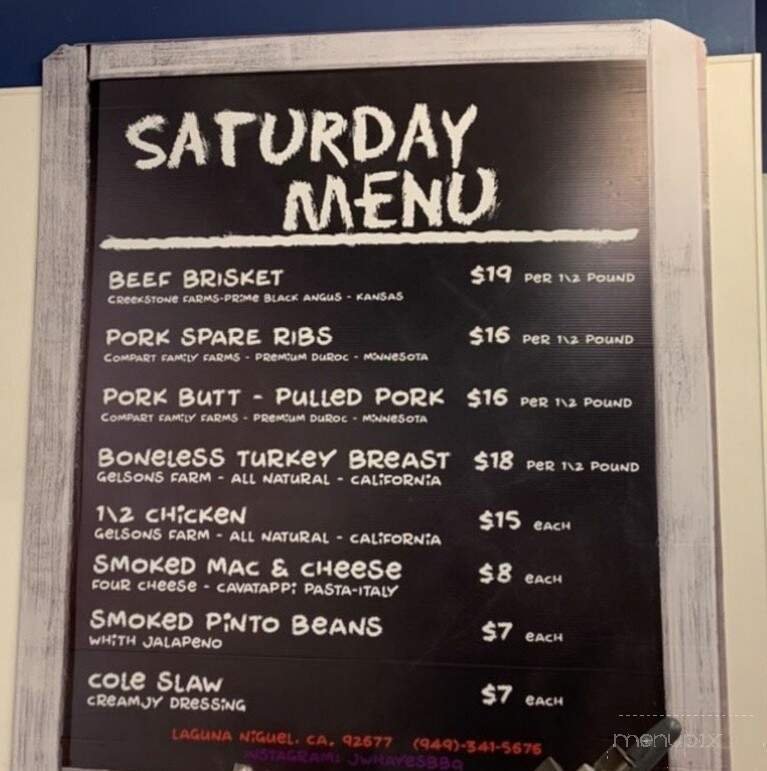 SATURDAY
MENU
BEEF BRISKET $19 PER 1\2 POUND
CREEKSTONE FARMS-PRIME BLACK ANGUS - KANSAS
PORK SPARE RIBS $16 PER 1\2 POUND
COMPART FAMILY FARMS - PREMIUM DUROC - MINNESOTA
PORK BUTT - PULLED PORK $16 PER 1\2 POUND
COMPART FAMILY FARMS - PREMIUM DUROC - MINNESOTA
BONELESS TURKEY BREAST $18 PER 1\2 POUND
GELSONS FARM - ALL NATURAL - CALIFORNIA
1\2 CHICKEN $15 EACH
GELSONS FARM - ALL NATURAL - CALIFORNIA
SMOKED MAC & CHEESE $8 EACH
FOUR CHEESE - CAVATAPPI PASTA-ITALY
SMOKED PINTO BEANS $7 EACH
WHITH JALAPENO
COLE SLAW $7 EACH
CREAMJY DRESSING
LAGUNA NIGUEL. CA. 92677 (949)-341-5676
INSTAGRAM: JWHAYESBBQ
menupix